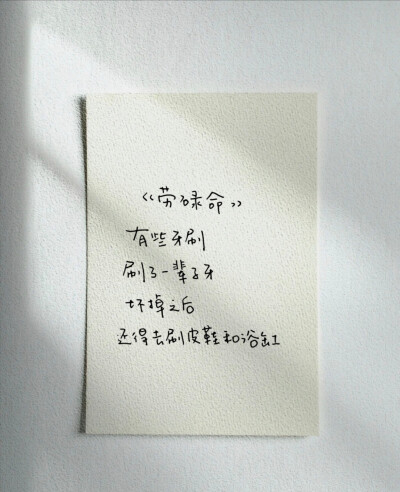 《劳碌命》
有些牙刷
刷了一辈子牙
坏掉之后
还得去刷皮鞋和浴缸